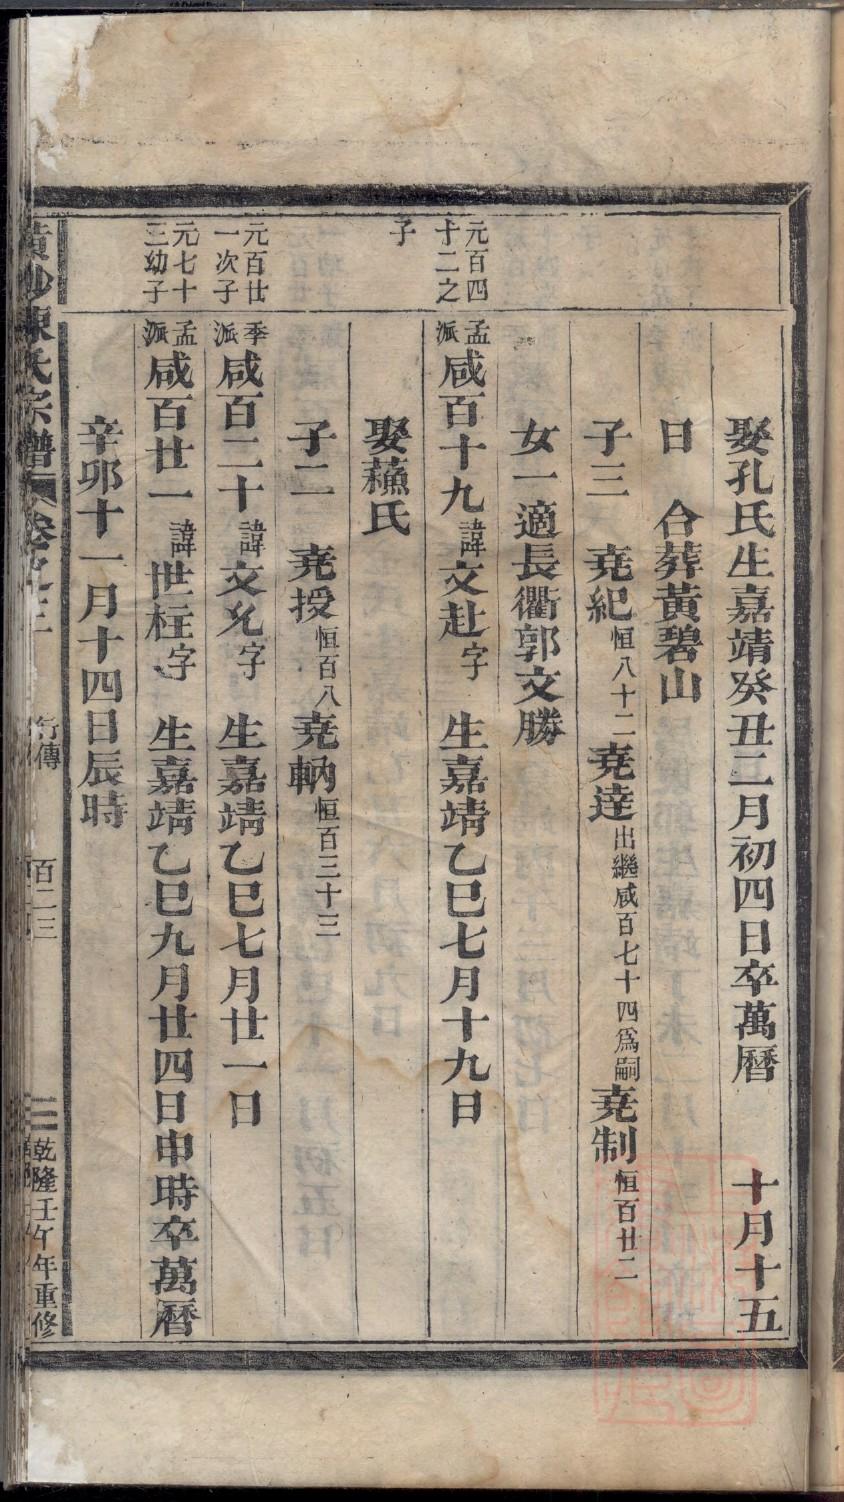 娶孔氏生嘉靖癸丑二月初四日卒萬曆　十月十五
日　合葬黃碧山
子三　堯紀恒八十二堯達出繼咸百七十四爲嗣堯制恒百廿二
女一適長衢郭文勝
元百四十二之子
孟派咸百十九諱文赴字　生嘉靖乙巳七月十九日
娶蘓氏
子二　堯授恒百八堯軜恒百三十三
元百廿一次子
季派咸百二十諱文允字　生嘉靖乙巳七月廿一日
元七十三幼子
孟派咸百廿一諱世柱字　生嘉靖乙巳九月廿四日申時卒萬曆
辛卯十一月十四日辰時
陳氏宗譜　卷之三　行傳　百二三　乾隆壬午年重修